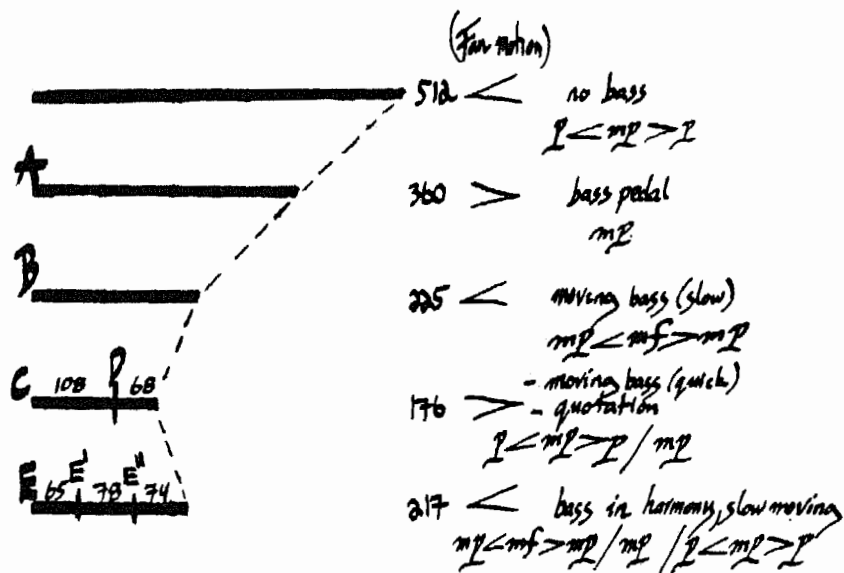 (Fan motion)
512 < no bass
p < mp > p
A 360 > bass pedal
mp
B 225 < moving bass (slow)
mp < mf > mp
- moving bass (quick)
C 108 D 68 176 > - quotation
p < mp > p / mp
E 65 E' 78 E" 74 217 < bass in harmony, slow moving
mp < mf > mp / mp / p < mp > p